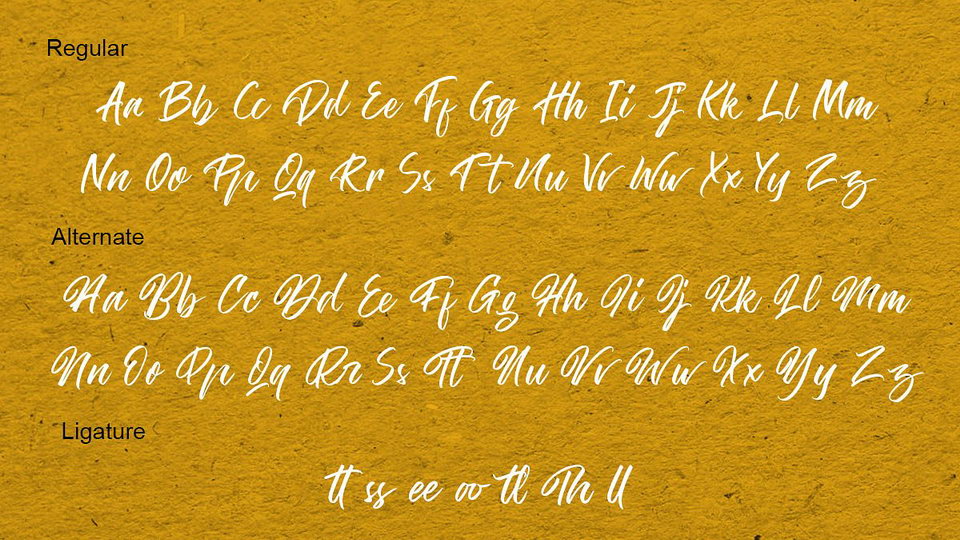 Regular
Aa Bb Cc Dd Ee Ff Gg Hh Ii Jj Kk Ll Mm
Nn Oo Pp Qq Rr Ss Tt Uu Vv Ww Xx Yy Zz
Alternate
Aa Bb Cc Dd Ee Ff Gg Hh Ii Jj Kk Ll Mm
Nn Oo Pp Qq Rr Ss Tt Uu Vv Ww Xx Yy Zz
Ligature
tt ss ee oo tl Th ll